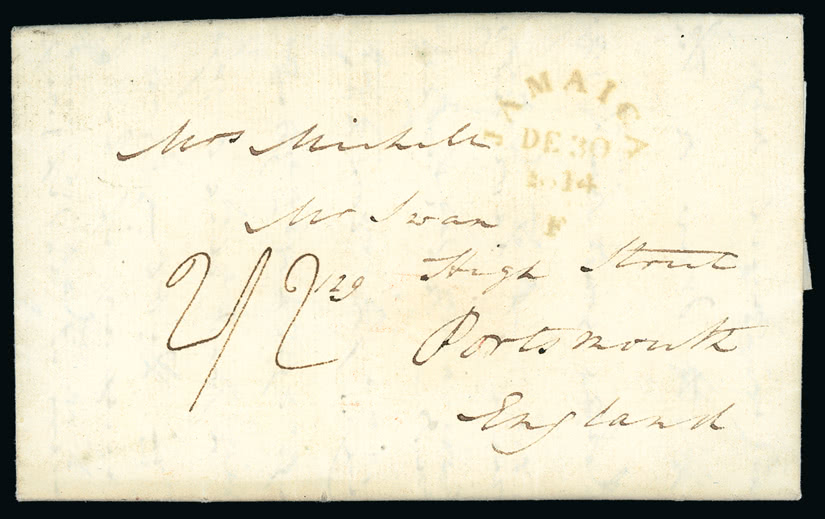 JAMAICA
DE 30
1814
F
Mrs Michell
Mr Swan
2/2 High Street
Portsmouth
England